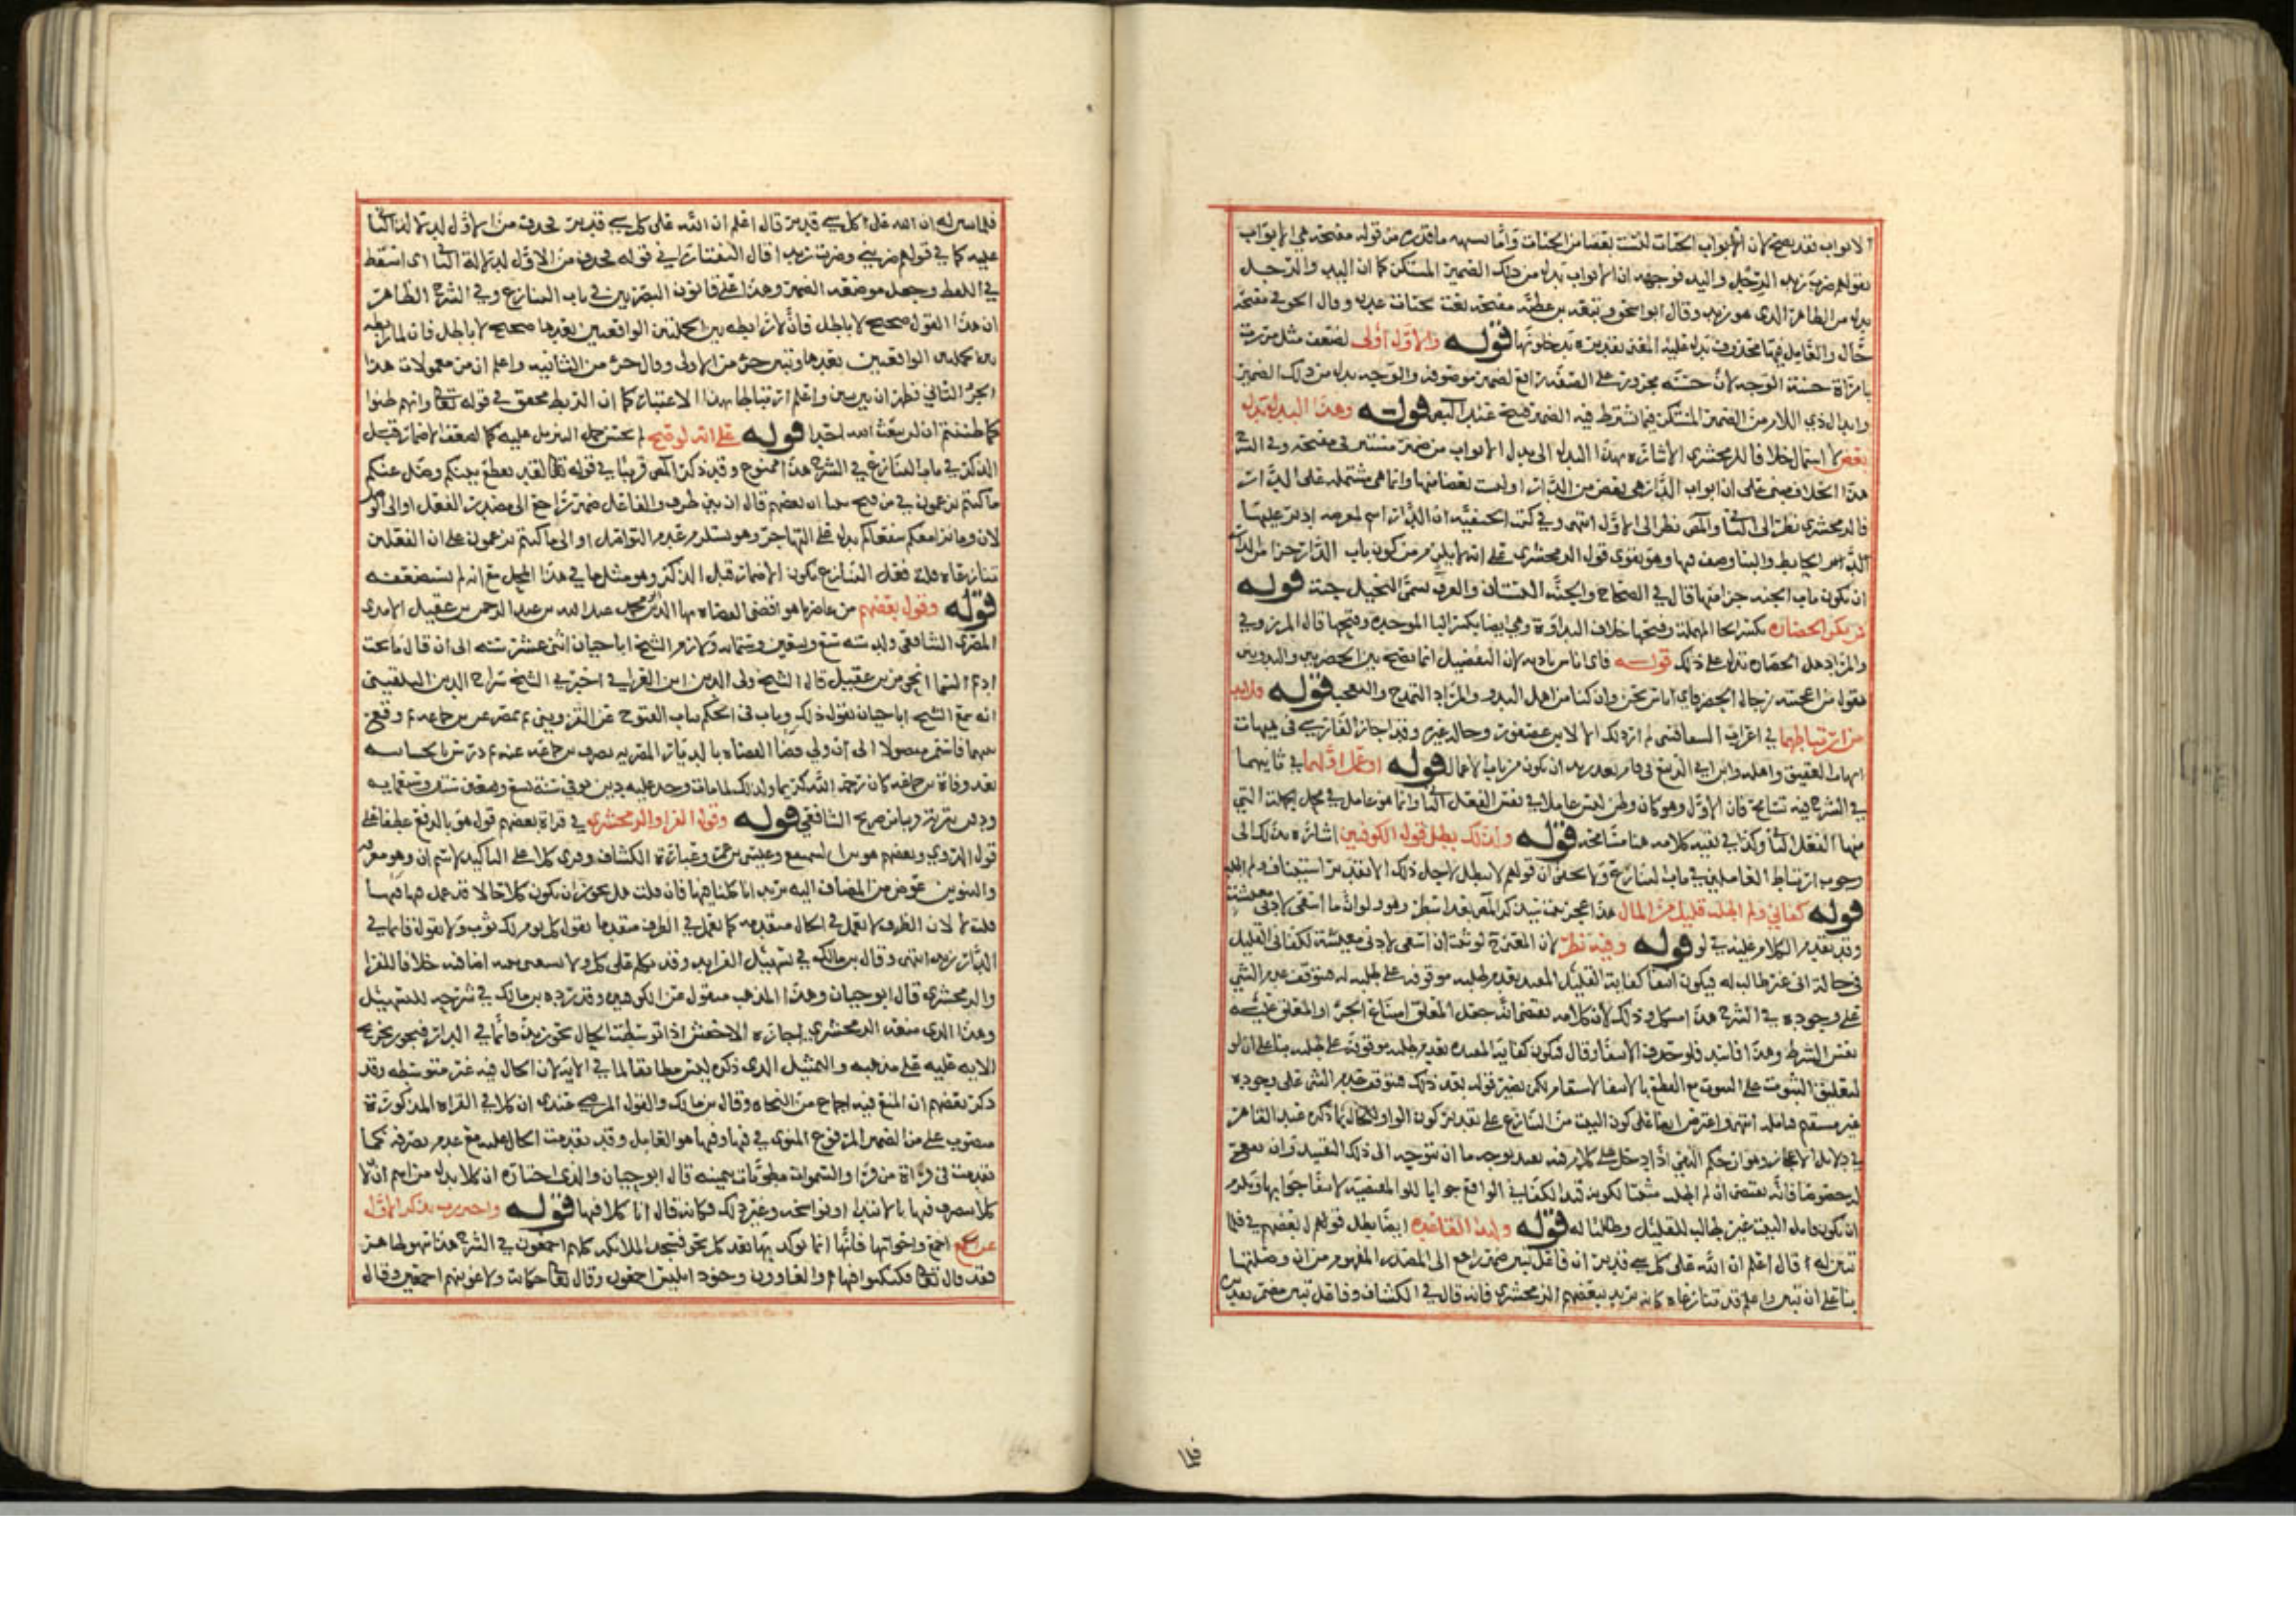 الابواب نعد يصح لان ابواب الجنات ليست بعضا من الجنات واما تشبيهه ماقدره من قوله مفتحة هي الابواب
بقولهم ضرب زيد الرجل واليد فوجهه ان الابواب بدل من ذلك الضمير المستكن كما ان اليد والرجل
بدل من الظاهر الذي هو زيد وقال ابو اسحق وتبعه بن عطية مفتحة نعت لجنات عدن وقال الحوفي مفتحة
حال والعامل فيها محذوف يدل عليه المعنى تقديره يدخلونها قوله والاول اولى لضعف مثل مررت
بامراة حسنة الوجه لان حسنة مجردة على الصفة رافع لضمير موصوفه والوجه بدل من ذلك الضمير
اللازم من الضمير المستكن فيما يشترط فيه الضمير قبيح عند قوله وهذا البدل بدل
بعض لا اشتمال خلافا للزمخشري الاشارة بهذا البدل الى بدل الابواب من ضمير مستتر في مفتحة وفي الشرح
هذا الخلاف مبني على ان ابواب الدار هي بعض من الدار او ليست بعضا منها وانما هي مشتملة على الدار
فالزمخشري نظر الى الثاني والمص نظر الى الاول انتهى وفي كتب الحنفية ان الدار اسم لعرصة ادير عليها
الحايط والبنا وصف فيها وهو يقوي قول الزمخشري على انه لا يلزم من كون باب الدار جزا من الدار
ان يكون باب الجنة جزا منها قال في الصحاح والجنة البستان والعرب تسمي النخيل جنة قوله
فمن يكن الحضارة بكسر الحا المهملة وفتحها خلاف البداوة وهي ايضا بكسر البا الموحدة وفتحها قال المرزوقي
والمراد اهل الحضارة يدل على ذلك قوله فاي اناس بادية لان التفضيل انما يصح بين الحضريين والبدويين
يقول من اعجبته رجال الحضر فاي اناس نحن وان كنا من اهل البدو والمراد التمدح والتعجب قوله ولابد
من ارتباطهما في اعراب السفاقسي لم ار ذلك الا لابن عصفور وحال غيره وقد اجاز الفارسي في هيهات
هيهات العقيق واهله وابن ابي الربيع في قام قعد زيد ان يكون من باب الاعمال قوله او عمل اولهما في ثانيهما
في الشرح فيه تسامح فان الاول وهو كان وظن ليس عاملا في نفس الفعل الثاني وانما هو عامل في محل الجملة التي
منها الفعل الثاني وكذا في بقية كلامه هنا مسامحة قوله ولذلك بطل قول الكوفيين اشارة بذلك الى
وجوب ارتباط العاملين في باب التنازع ولا يخفى ان قولهم لا يبطل لاجل ذلك الا بتقدير استيناف ولم اطلب
قوله كفاني ولم اطلب قليل من المال هذا عجز بيت يذكر المص بعد اسطر وهو ولو ان ما اسعى لادنى معيشة
وقد تقدم الكلام عليه في لو قوله وفيه نظر لان المعنى ح لو ثبت ان اسعى لادنى معيشة لكفاني القليل
في حالة اني غير طالب له فيكون انتفا كفاية القليل المقيد بعدم طلبه موقوفة على طلبه له فيتوقف عدم الشي
على وجوده في الشرح هذا مشكل وذلك لان كلامه يقتضي انه جعل المعلق امتناع الجزا والمعلق عليه
نفس الشرط وهذا فاسد فلو حذف الانتفا وقال فيكون كفاية المقيدة بعدم طلبه موقوفة على طلبه بنا على ان لو
لتعليق الثبوت على الثبوت مع القطع بالانتفا لاستقام لكن يصير قوله بعد ذلك فيتوقف عدم الشي على وجوده
غير مستقيم فتامله انتهى واعترض ايضا على كون البيت من التنازع على تقدير كون الواو للحال بما ذكره عبد القاهر
في دلايل الاعجاز وهو ان حكم النفي اذا دخل على كلام فيه تقييد بوجه ما ان يتوجه الى ذلك التقييد وان يقع
له خصوصا فانه يقتضي ان لم اطلب مثبتا لكونه قيد الكفاني الواقع جوابا للو المقتضية لانتفا جوابها ويلزم
ان يكون قايل البيت غير طالب للقليل وطالبا له قوله ولهذه القاعدة ايضا بطل قولهم بعضهم في فلما
تبين له قال اعلم ان الله على كل شي قدير ان فاعل تبين ضمير راجع الى المصدر المفهوم من ان وصلتها
بنا على ان تبين واعلم قد تنازعاه كانه يريد ببعضهم الزمخشري فانه قال في الكشاف وفاعل تبين مضمر تقديره
فلما
فلما تبين له ان الله على كل شي قدير قال اعلم ان الله على كل شي قدير فحذف من الاول لدلالة الثاني
عليه كما في قولهم ضربني وضربت زيدا قال التفتازاني في قوله فحذف من الاول لدلالة الثاني اي اسقط
في اللفظ وجعل موضعه الضمير وهذا على قانون البصريين في باب التنازع وفي الشرح الظاهر
ان هذا القول صحيح لا باطل فان لما رابطة بين الجملتين الواقعتين بعدها صحيح لا باطل فان لما رابطة
بين الجملتين الواقعتين بعدها وتبين جزء من الاولى وقال جزء من الثانية واعلم ان من معمولات هذا
الجزء الثاني فظهر ان بين تبين واعلم ارتباطا بهذا الاعتبار كما ان الربط محقق في قوله تعالى وانهم ظنوا
كما ظننتم ان لن يبعث الله احدا قوله على انه لو صح لم يحسن حمل التنزيل عليه كما لضعف الاضمار قبل
الذكر في باب التنازع في الشرح هذا ممنوع وقد ذكر المص قريبا في قوله تعالى لقد تقطع بينكم وضل عنكم
ما كنتم تزعمون في من فتح بينا ان بعضهم قال ان بين ظرف والفاعل ضمير راجع الى مصدر الفعل او الى الوصل
لان وما نرى معكم شفعاكم يدل على التهاجر وهو يستلزم عدم التواصل او الى ما كنتم تزعمون على ان الفعلين
تنازعاه قلت فعلى التنازع يكون الاضمار قبل الذكر وهو مثل ما في هذا المحل مع انه لم يستضعفه
قوله وقول بعضهم من عاصرناه هو اقضى القضاه بها الدين محمد عبد الله بن عبد الرحمن بن عقيل الامدي
المصري الشافعي ولد سنة تسع وتسعين وستمايه ولازم الشيخ ابا حيان اثنى عشرة سنه الى ان قال ما تحت
اديم السما انحى من بن عقيل قال الشيخ ولي الدين ابن العراقي اخبرني الشيخ سراج الدين البلقيني
انه سمع الشيخ ابا حيان يقول ذلك وناب في الحكم بباب الفتوح عن القزويني ثم بمصر عن بن جماعه ثم وقع
بينهما فاستمر معزولا الى ان ولي قضا القضاه بالديار المصريه بصرف بن جماعه عنه ثم درس بالخشابيه
بعد وفاة بن جماعه كان رحمه الله كريما ولذلك لما مات وجد عليه دين توفي سنة تسع وستين وسبعمايه
ودفن بتربة قريبا من ضريح الشافعي قوله وقول الفرا والزمخشري في قراة بعضهم قول هو بالرفع عطفا على
قول المروي وبعضهم هو ابن السميفع وعيسى بن عمر وعبارة الكشاف وقري كلا على التاكيد لاسم ان وهو معرفة
والتنوين عوض من المضاف اليه يريد انا كلنا فيها فان قلت هل يجوز ان يكون كلا حالا قد عمل فيها فيها
قلت لا لان الظرف لا يعمل في الحال متقدمة كما يعمل في الظرف متقدما تقول كل يوم لك ثوب ولا تقول قايما في
الدار زيد انتهى وقال بن مالك في تسهيل الفوايد وقد تكلم على كل ولا يستغنى بنية اضافته خلافا للفرا
والزمخشري قال ابو حيان وهذا المذهب منقول عن الكوفيين وقد رده بن مالك في شرحه للتسهيل
وهذا الذي منعه الزمخشري اجازه الاخفش اذا توسطت الحال نحو زيد قائما في الدار فيجوز تخريج
الايه عليه على مذهبه والتمثيل الذي ذكره ليس مطابقا لما في الاية لان الحال فيه غير متوسطه وقد
ذكر بعضهم ان المنع فيه اجماع من النحاه وقال بن مالك والقول المرضي عندي ان كلا في القراه المذكورة
منصوب على من الضمير المرفوع المنوي في فيها وفيها هو العامل وقد تقدمت الحال عليه مع عدم تصرفه كما
تقدمت في قراة من قرا والسموات مطويات بيمينه قال ابو حيان والذي اختاره ان كلا بدل من اسم ان لا
كلا يتصرف فيها بالابتدا ونواسخه وغير ذلك فكانه قال انا كلا فيها قوله واحترزت بذكر الاول
عن اجمع واخواتها فانها انما توكد بها بعد كل نحو فسجد الملائكة كلهم اجمعون في الشرح هذا سهو ظاهر
فقد قال تعالى فكبكبوا فيها هم والغاوون وجنود ابليس اجمعون وقال تعالى حكاية ولاغوينهم اجمعين وقال